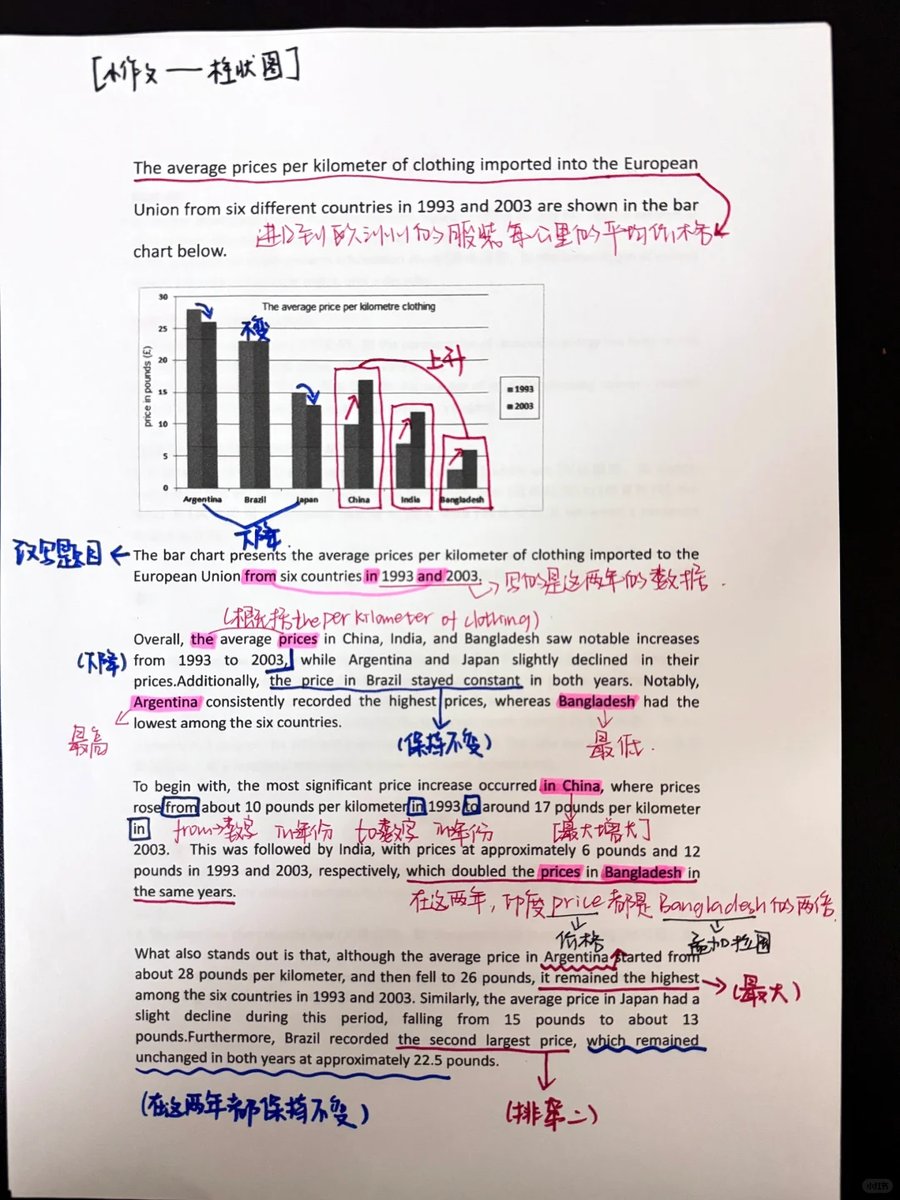 [小作文 — 柱状图]
The average prices per kilometer of clothing imported into the European
Union from six different countries in 1993 and 2003 are shown in the bar
进口到欧洲的服装每公里的平均价格
chart below.
The average price per kilometre clothing
price in pounds (£)
30
25
20
15
10
5
0
不变
上升
1993
2003
Argentina Brazil Japan China India Bangladesh
下降
改写题目
The bar chart presents the average prices per kilometer of clothing imported to the
European Union from six countries in 1993 and 2003.
写的是这两年的数据.
(概括the per kilometer of clothing)
Overall, the average prices in China, India, and Bangladesh saw notable increases
(下降)
from 1993 to 2003, while Argentina and Japan slightly declined in their
prices.Additionally, the price in Brazil stayed constant in both years. Notably,
Argentina consistently recorded the highest prices, whereas Bangladesh had the
lowest among the six countries.
最高
(保持不变)
最低.
To begin with, the most significant price increase occurred in China, where prices
rose from about 10 pounds per kilometer in 1993 to around 17 pounds per kilometer
in
from→数字 in年份 to数字 in年份
[最大增大]
2003. This was followed by India, with prices at approximately 6 pounds and 12
pounds in 1993 and 2003, respectively, which doubled the prices in Bangladesh in
the same years.
在这两年,印度price都是Bangladesh的两倍
价格
孟加拉国
What also stands out is that, although the average price in Argentina started from
about 28 pounds per kilometer, and then fell to 26 pounds, it remained the highest
(最大)
among the six countries in 1993 and 2003. Similarly, the average price in Japan had a
slight decline during this period, falling from 15 pounds to about 13
pounds.Furthermore, Brazil recorded the second largest price, which remained
unchanged in both years at approximately 22.5 pounds.
(在这两年都保持不变)
(排第二)
小红书